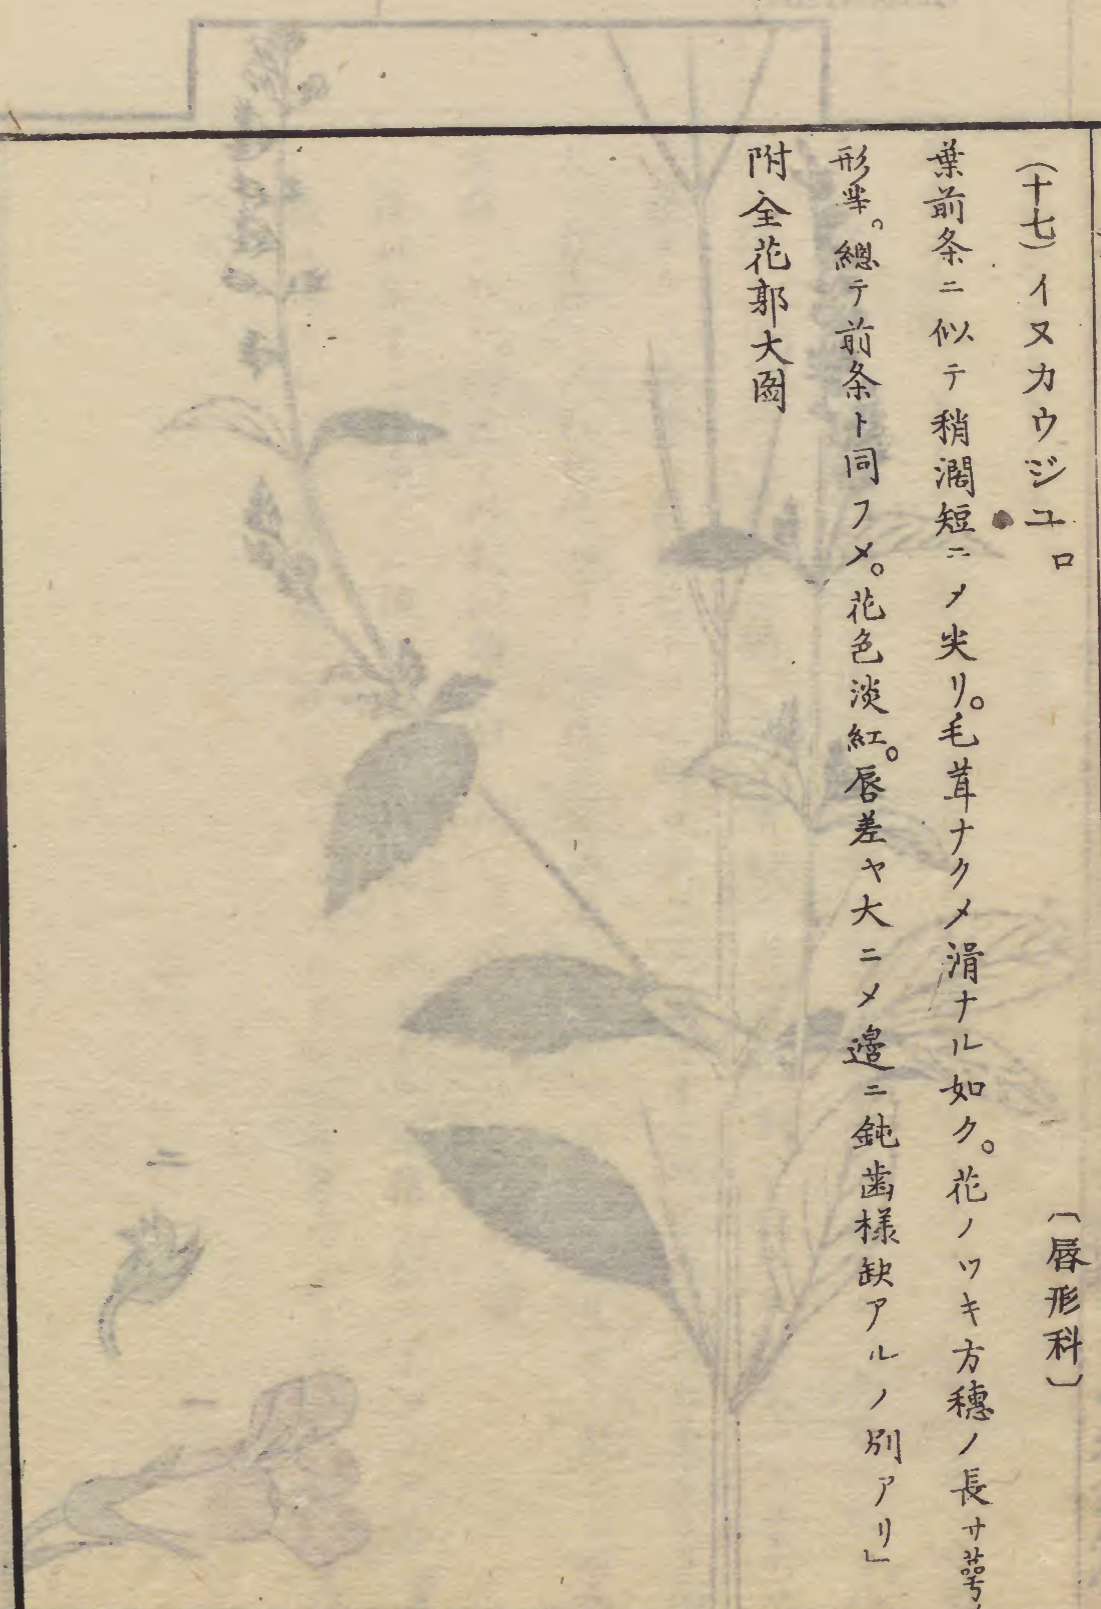 (十七)イヌカウジユ ロ 〔唇形科〕
葉前条ニ似テ稍濶短ニメ尖リ。毛茸ナクメ滑ナル如ク。花ノツキ方穗ノ長サ萼ノ
形等。總テ前条ト同フメ。花色淡紅。唇差ヤ大ニメ邊ニ鈍歯様缺アルノ別アリ」
附全花郭大圖
二
一